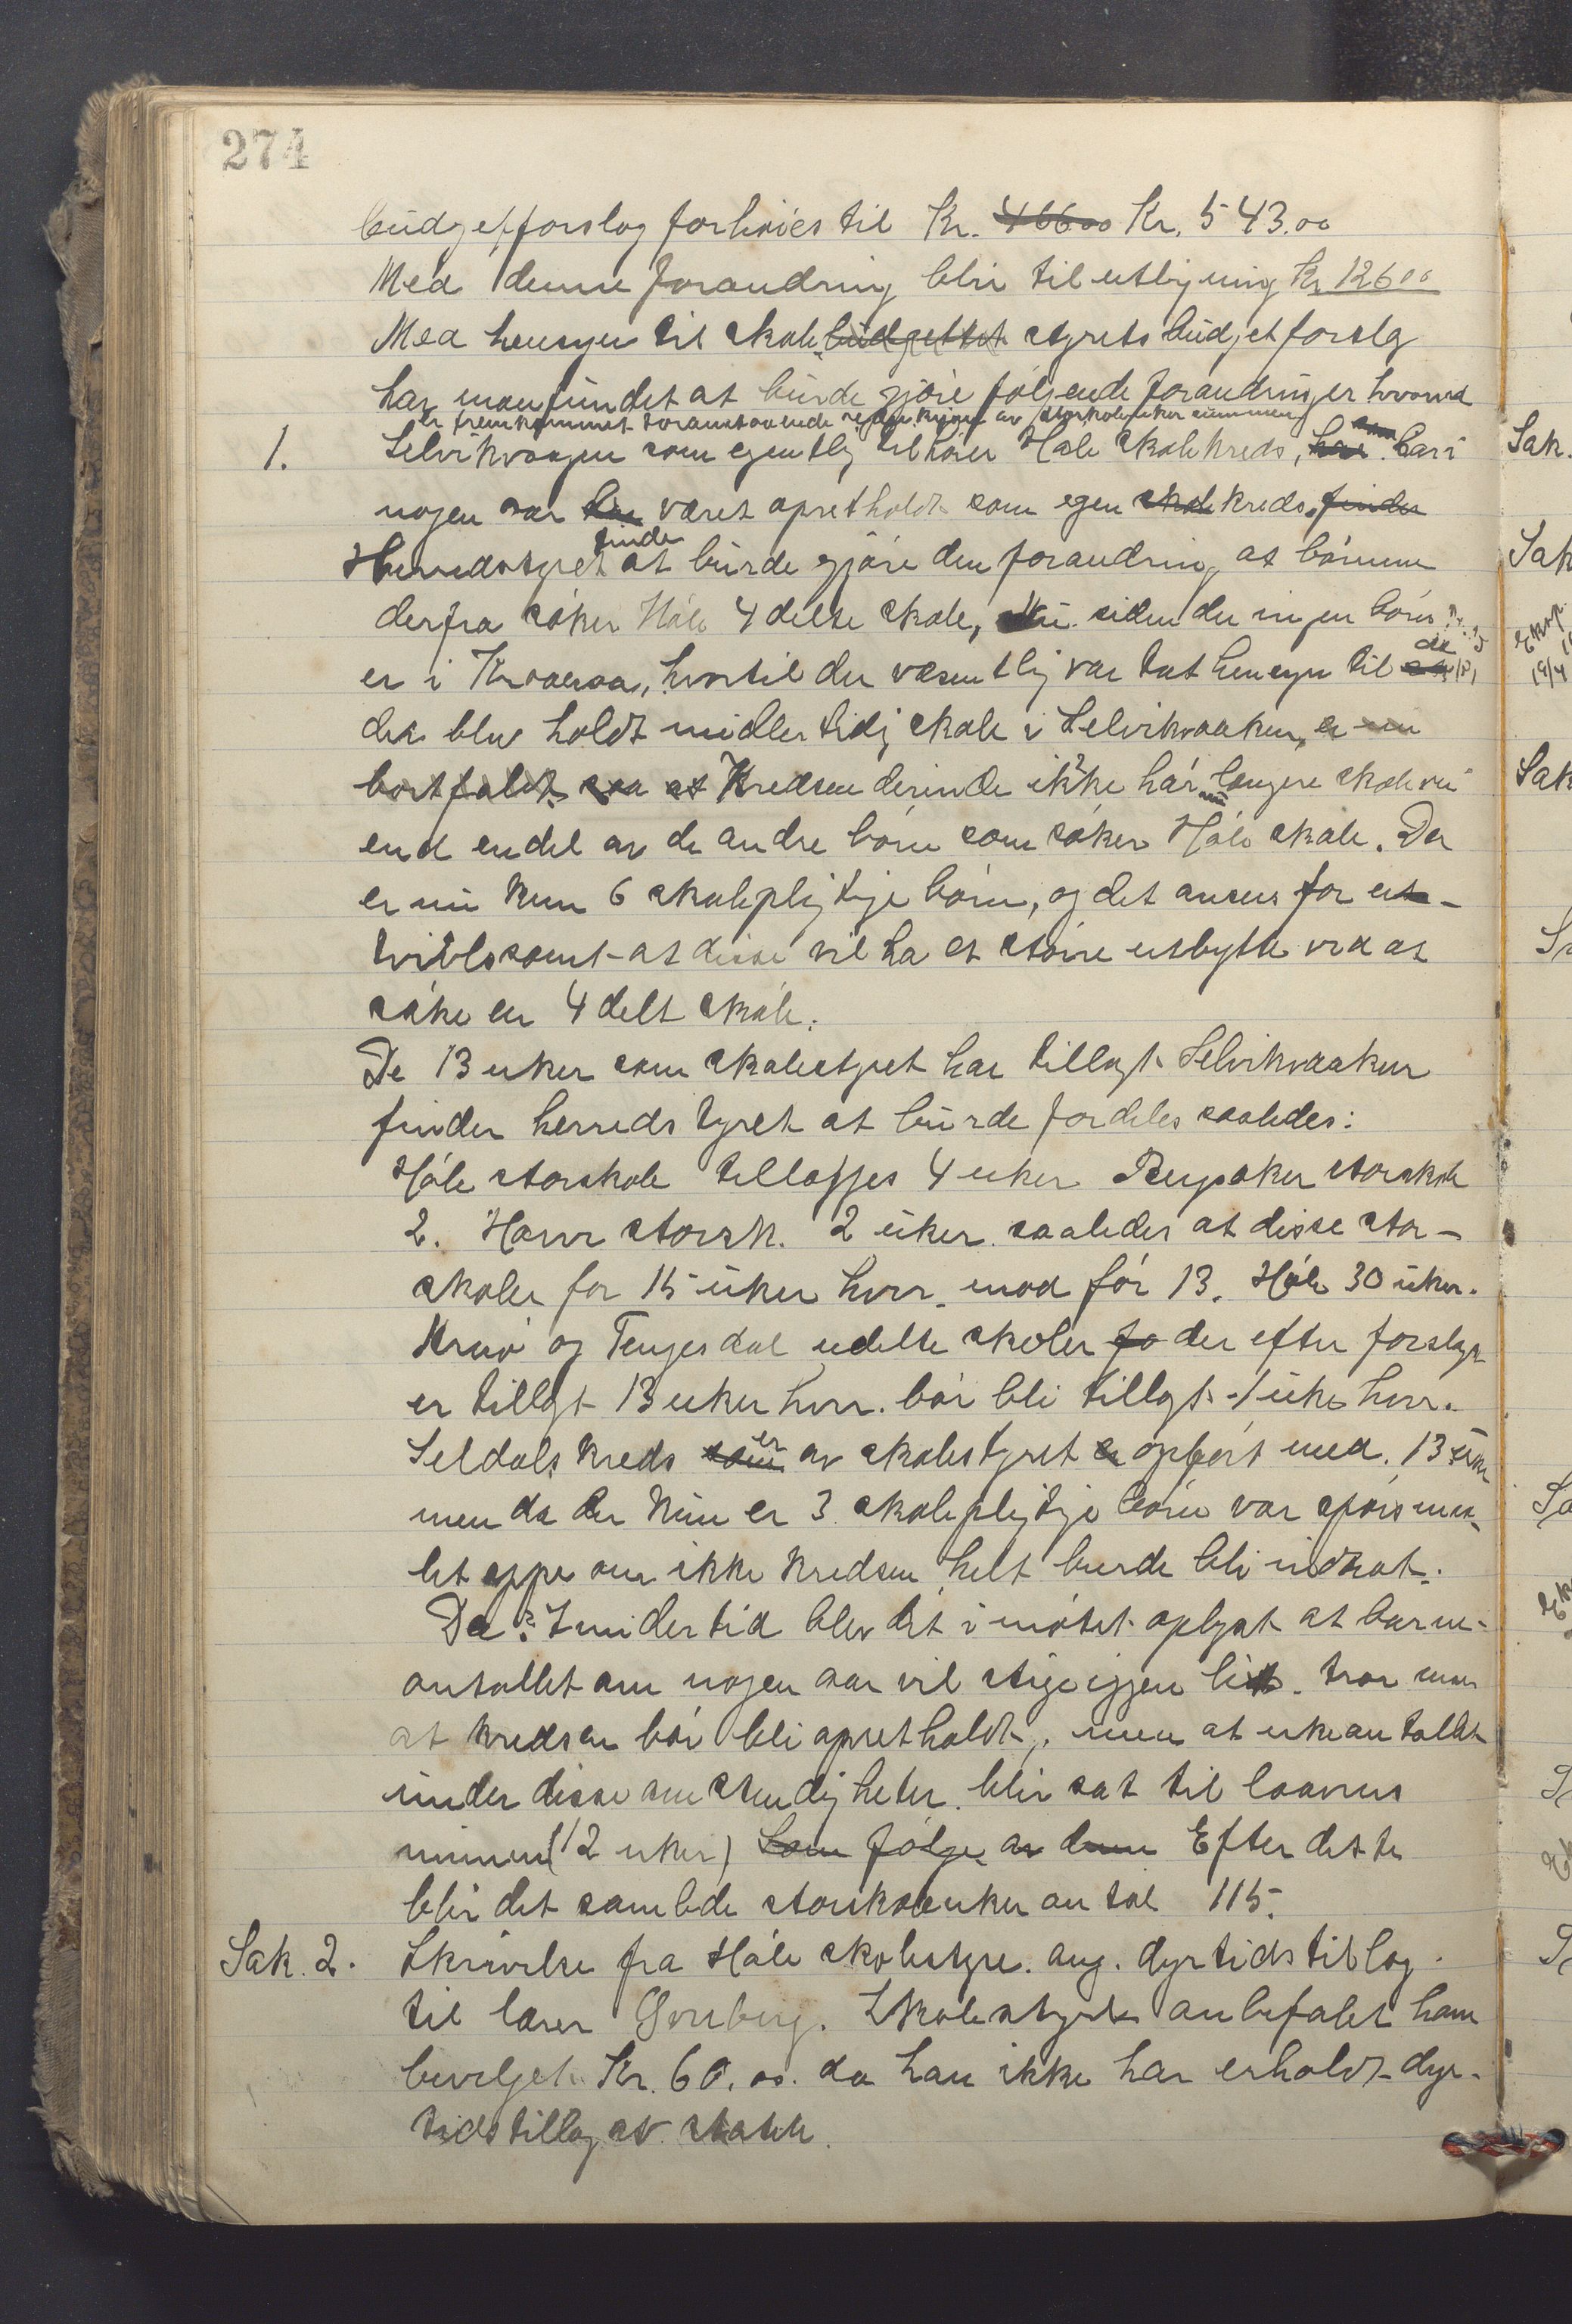 274
budgetforslag forhöies til Kr. 466.00 Kr. 543.00
Med denne forandring blir til utligning Kr 12600
Med hensyn til skolebudgettet styrets budjetforslg
har man fundet at burde gjöre följende forandringer hvorved
er fremkommet foranstaaende av storskoleuker summen
1. Selvikvaagen som egentlig tilhörer Höle skolekreds, har i
nogen aar været opretholdt som egen skolekreds, finder
finder
Herredstyret at burde gjöre den forandring, at börnene
derfra söker Höle 4 delte skole, Nu siden der ingen börn
de
er i Kraaeraa, hvortil der væsentlig var tat hensyn til
der blev holdt midlertidig skole i Selvikvaaken, er nu
bortfaldt, saa at Kredsen derinde ikke har længere skolevei
nu
end endel av de andre börn som söker Höle skole. Der
er nu kun 6 skolepligtige börn, og det ansees for ut-
tvivlsomt at disse vil ha et större utbytte ved at
söke en 4 delt skole.
De 13 uker som skolestyret har tillagt Selvikvaaken
finder herredstyret at burde fordeles saaledes:
Höle storskole tillægges 4 uker storskole
2. storsk. 2 uker saaledes at disse stor-
skoler for 15 uker hver mod för 13. Höle 30 uker.
og Tengesdal udelte skoler fo der efter forslaget
er tillagt 13 uker hver. bör bli tillagt 1 uke hver.
er
Seldals kreds som av skolestyret er opfört med 13 uker
men da der kun er 3 skolepligtige börn var spörsmaa-
let oppe om ikke kredsen helt burde bli inddrat.
Da Imidlertid blev det i mötet oplyst at barne-
antallet om nogen aar vil stige igjen litt. tror man
at kredsen bör bli opretholdt, men at ukeantallet
under disse omstendigheter blir sat til loavens
minimum (12 uker) Som fölge av denne Efter dette
blir det samlede storskoleuker antal 115.
Sak. 2. Skrivelse fra Höle skolestyre ang. dyrtidstillæg
til lærer. Skolestyret anbefalet ham
bevilget Kr. 60.00. da han ikke har erholdt dyr-
tidstillæg av staten.
Sak.
Sak
Sak